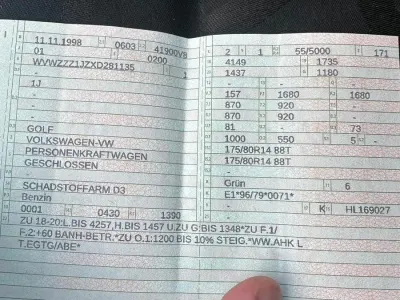 11.11.1998 0603 41900V8
01 0200
WVWZZZ1JZXD281135 1
-
1J
-
-
-
GOLF
VOLKSWAGEN-VW
PERSONENKRAFTWAGEN
GESCHLOSSEN
-
SCHADSTOFFARM D3
Benzin
0001 0430 1390
2 1 55/5000 171
4149 1735
1437 1180
- - -
157 1680 1680
870 920 -
870 920 -
81 - 73
1000 550 5 -
175/80R14 88T
175/80R14 88T
-
Grün 6
E1*96/79*0071*
- K HL169027
ZU 18-20:L.BIS 4257,H.BIS 1457 U.ZU G:BIS 1348*ZU F.1/
F.2:+60 BANH-BETR.*ZU O.1:1200 BIS 10% STEIG.*WW.AHK L
T.EGTG/ABE*